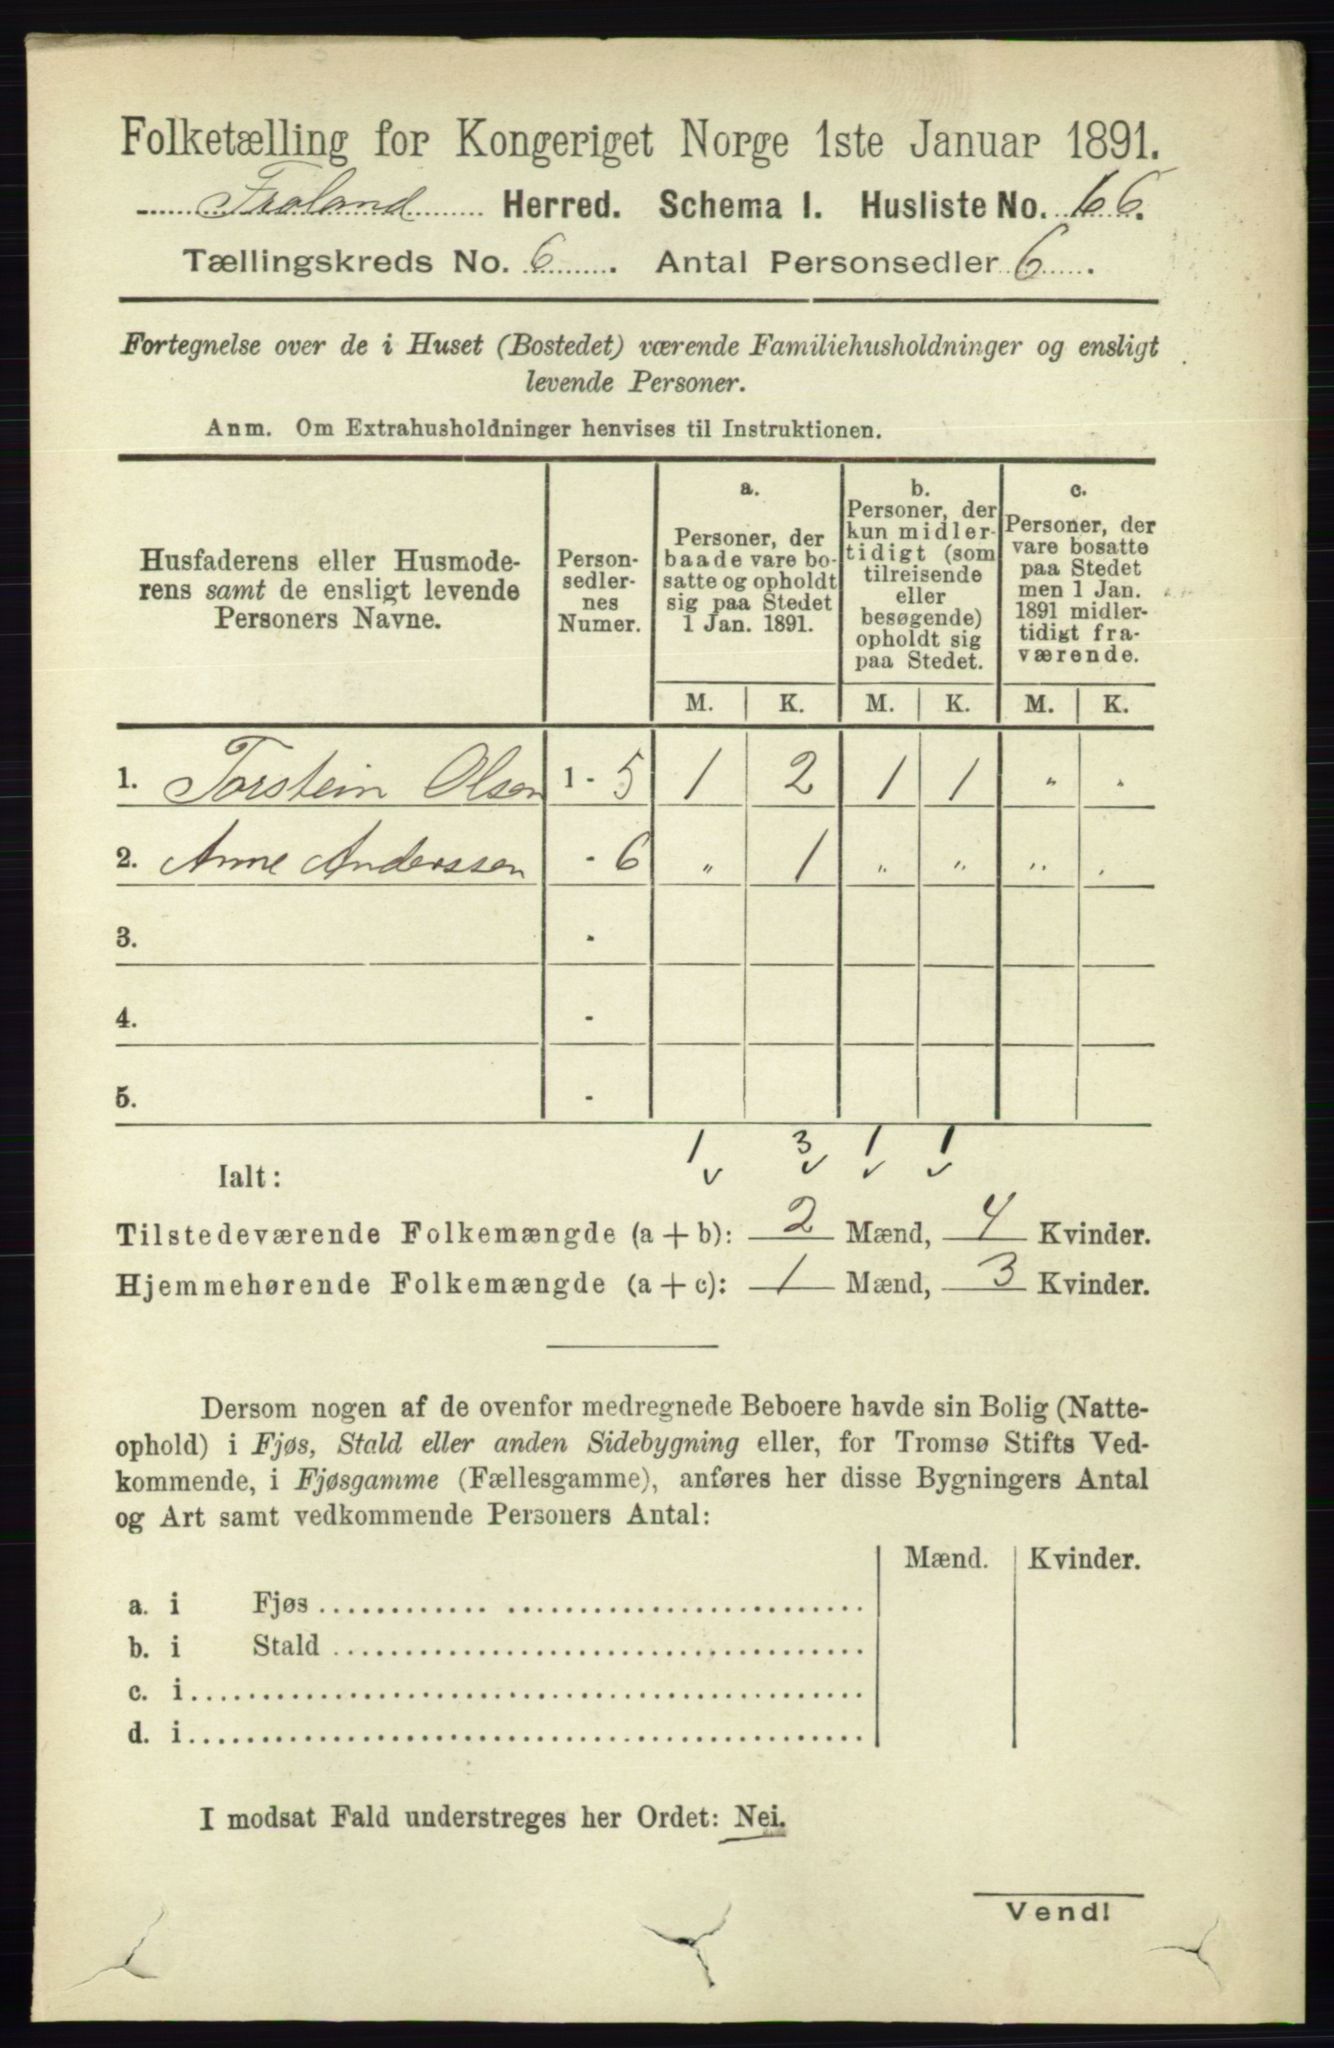 Folketælling for Kongeriget Norge 1ste Januar 1891.
Froland Herred. Schema I. Husliste No. 66.
Tællingskreds No. 6. Antal Personsedler 6.
Fortegnelse over de i Huset (Bostedet) værende Familiehusholdninger og ensligt
levende Personer.
Anm. Om Extrahusholdninger henvises til Instruktionen.
Husfaderens eller Husmode-
rens samt de ensligt levende
Personers Navne.
Person-
sedler-
nes
Numer.
a.
Personer, der
baade vare bo-
satte og opholdt
sig paa Stedet
1 Jan. 1891.
b.
Personer, der
kun midler-
tidigt (som
tilreisende
eller
besøgende)
opholdt sig
paa Stedet.
c.
Personer, der
vare bosatte
paa Stedet
men 1 Jan.
1891 midler-
tidigt fra-
værende.
M. K. M. K. M. K.
1. Torstein Olsen 1 - 5 1 2 1 1 " "
2. Anne Anderssen - 6 " 1 " " " "
3. -
4. -
5. -
1 3 1 1
Ialt:
Tilstedeværende Folkemængde (a + b): 2 Mænd, 4 Kvinder.
Hjemmehørende Folkemængde (a + c): 1 Mænd, 3 Kvinder.
Dersom nogen af de ovenfor medregnede Beboere havde sin Bolig (Natte-
ophold) i Fjøs, Stald eller anden Sidebygning eller, for Tromsø Stifts Ved-
kommende, i Fjøsgamme (Fællesgamme), anføres her disse Bygningers Antal
og Art samt vedkommende Personers Antal:
Mænd. Kvinder.
a. i Fjøs
b. i Stald
c. i
d. i
I modsat Fald understreges her Ordet: Nei.
Vend!